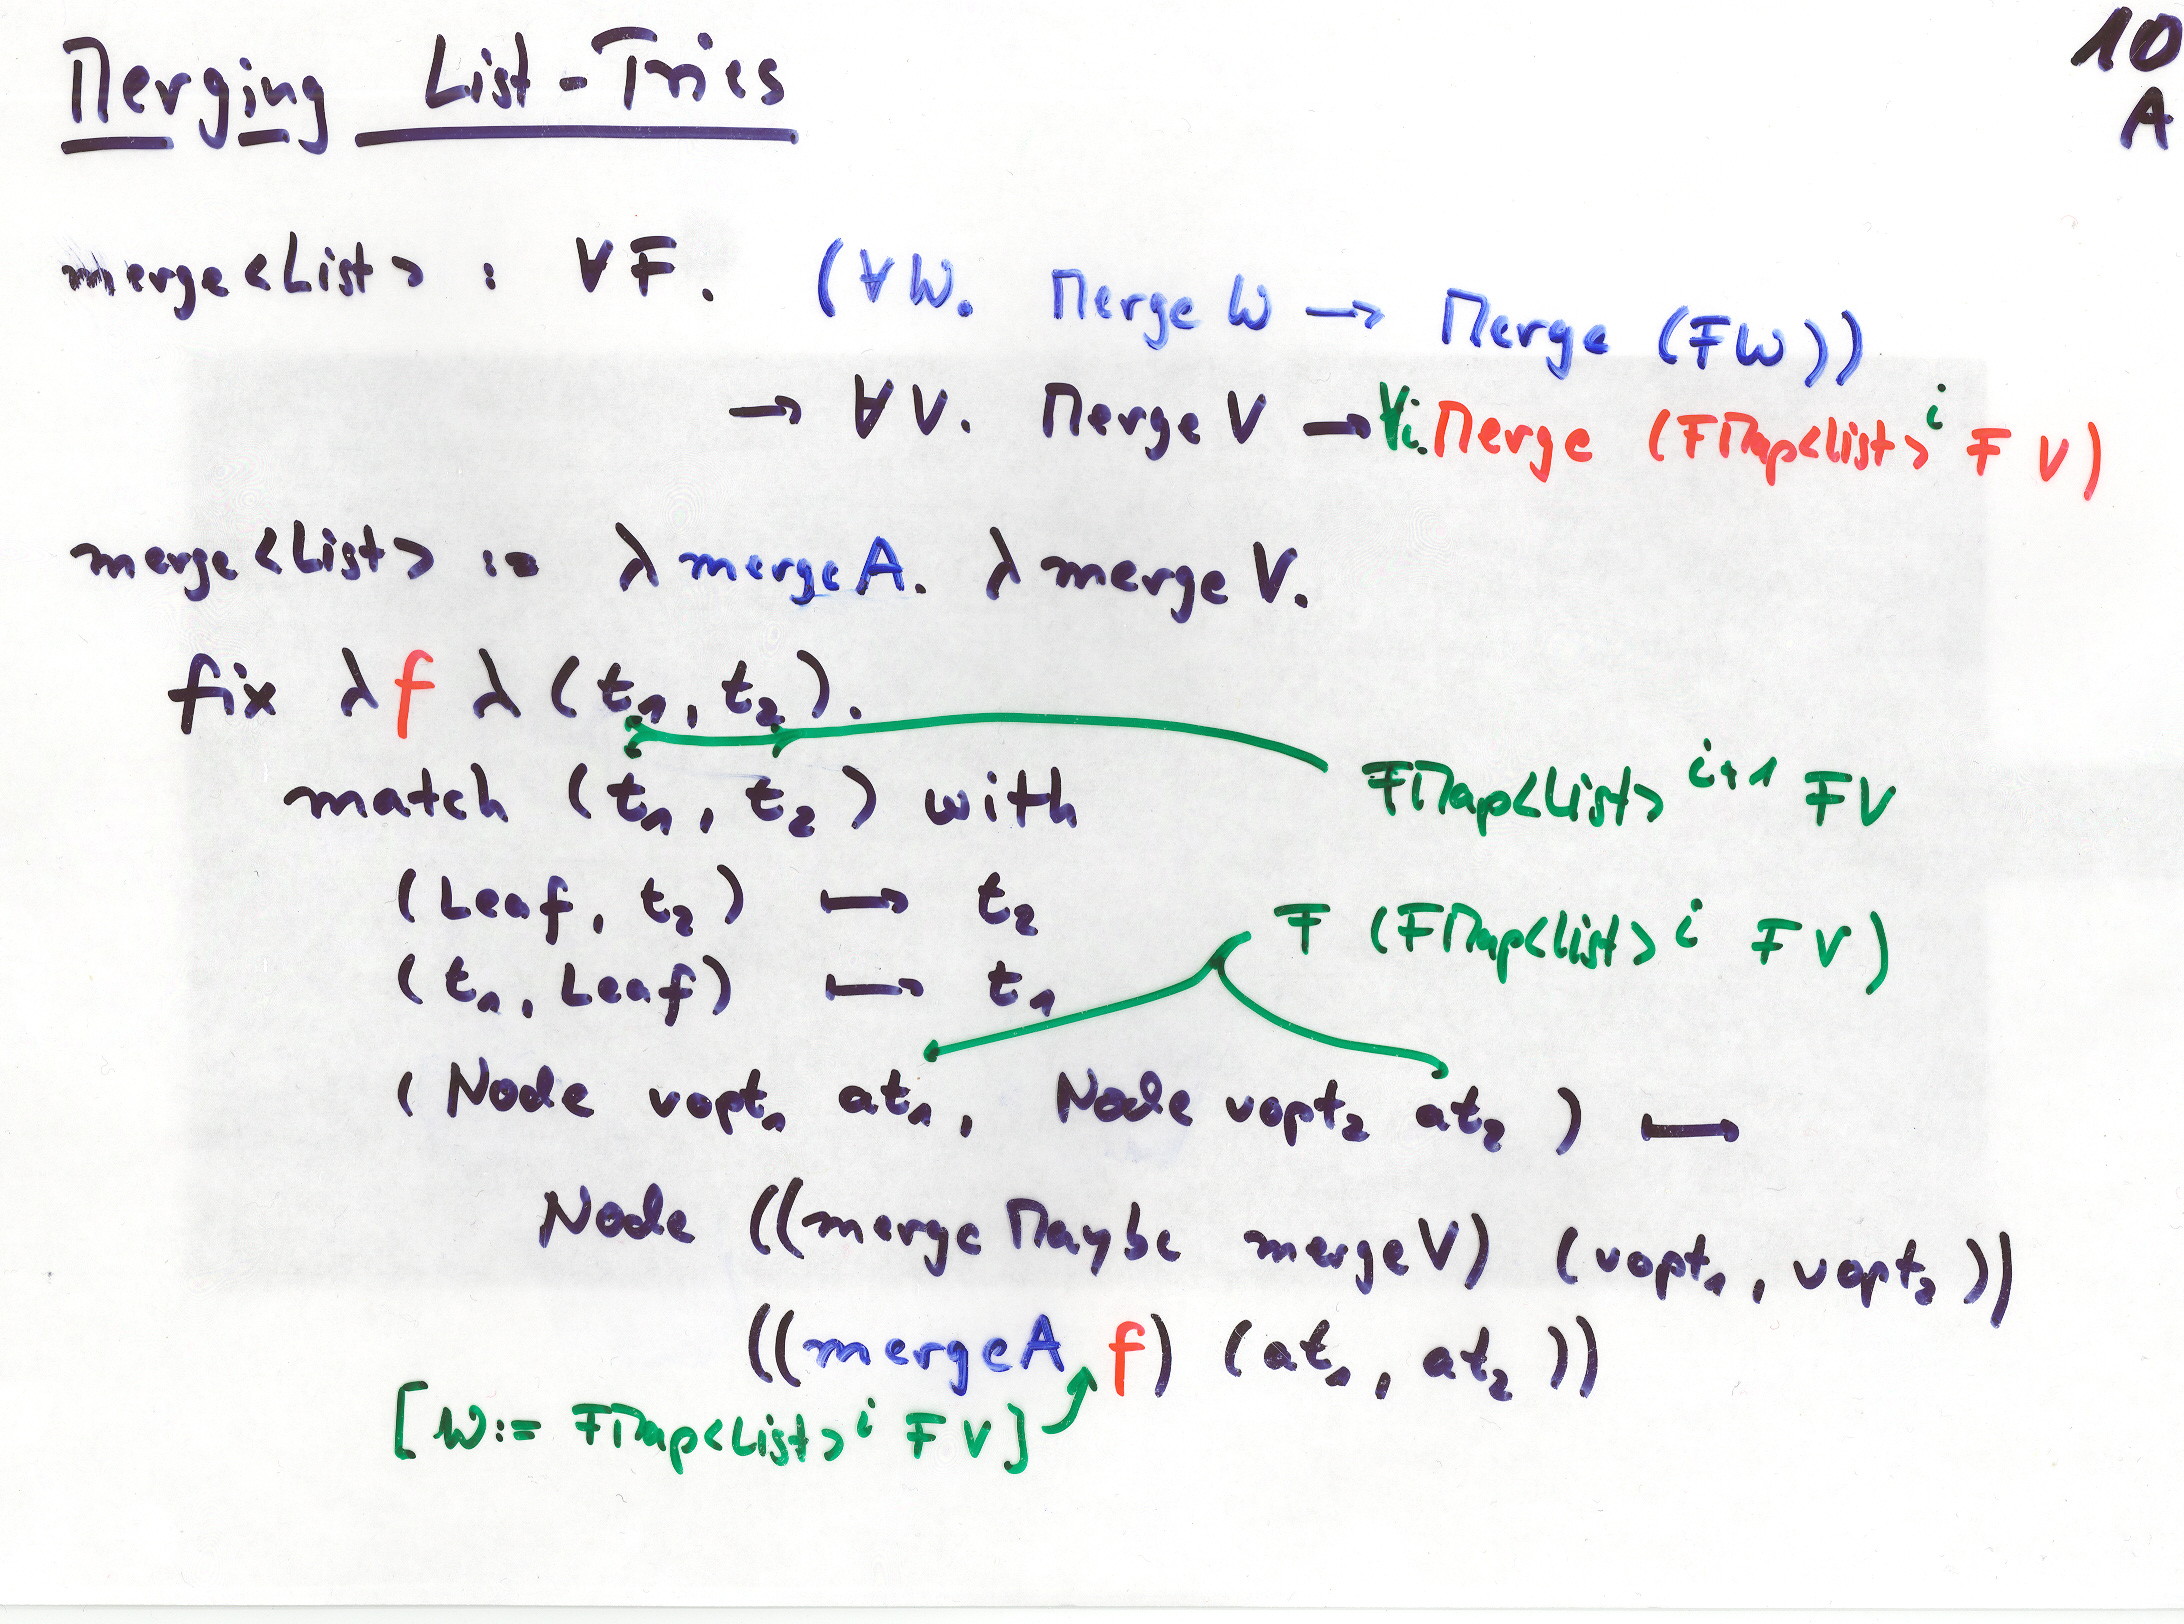 Merging List-Tries
10
A
merge<List> : ∀F. (∀W. Merge W → Merge (FW))
→ ∀V. Merge V → ∀i. Merge (FMap<List>^i F V)
merge<List> := λ mergeA. λ mergeV.
fix λ f λ (t₁, t₂).
match (t₁, t₂) with
FMap<List>^{i+1} F V
(Leaf, t₂) ↦ t₂
F (FMap<List>^i F V)
(t₁, Leaf) ↦ t₁
(Node vopt₁ at₁, Node vopt₂ at₂) ↦
Node ((mergeMaybe mergeV) (vopt₁, vopt₂))
((mergeA f) (at₁, at₂))
[W := FMap<List>^i F V]